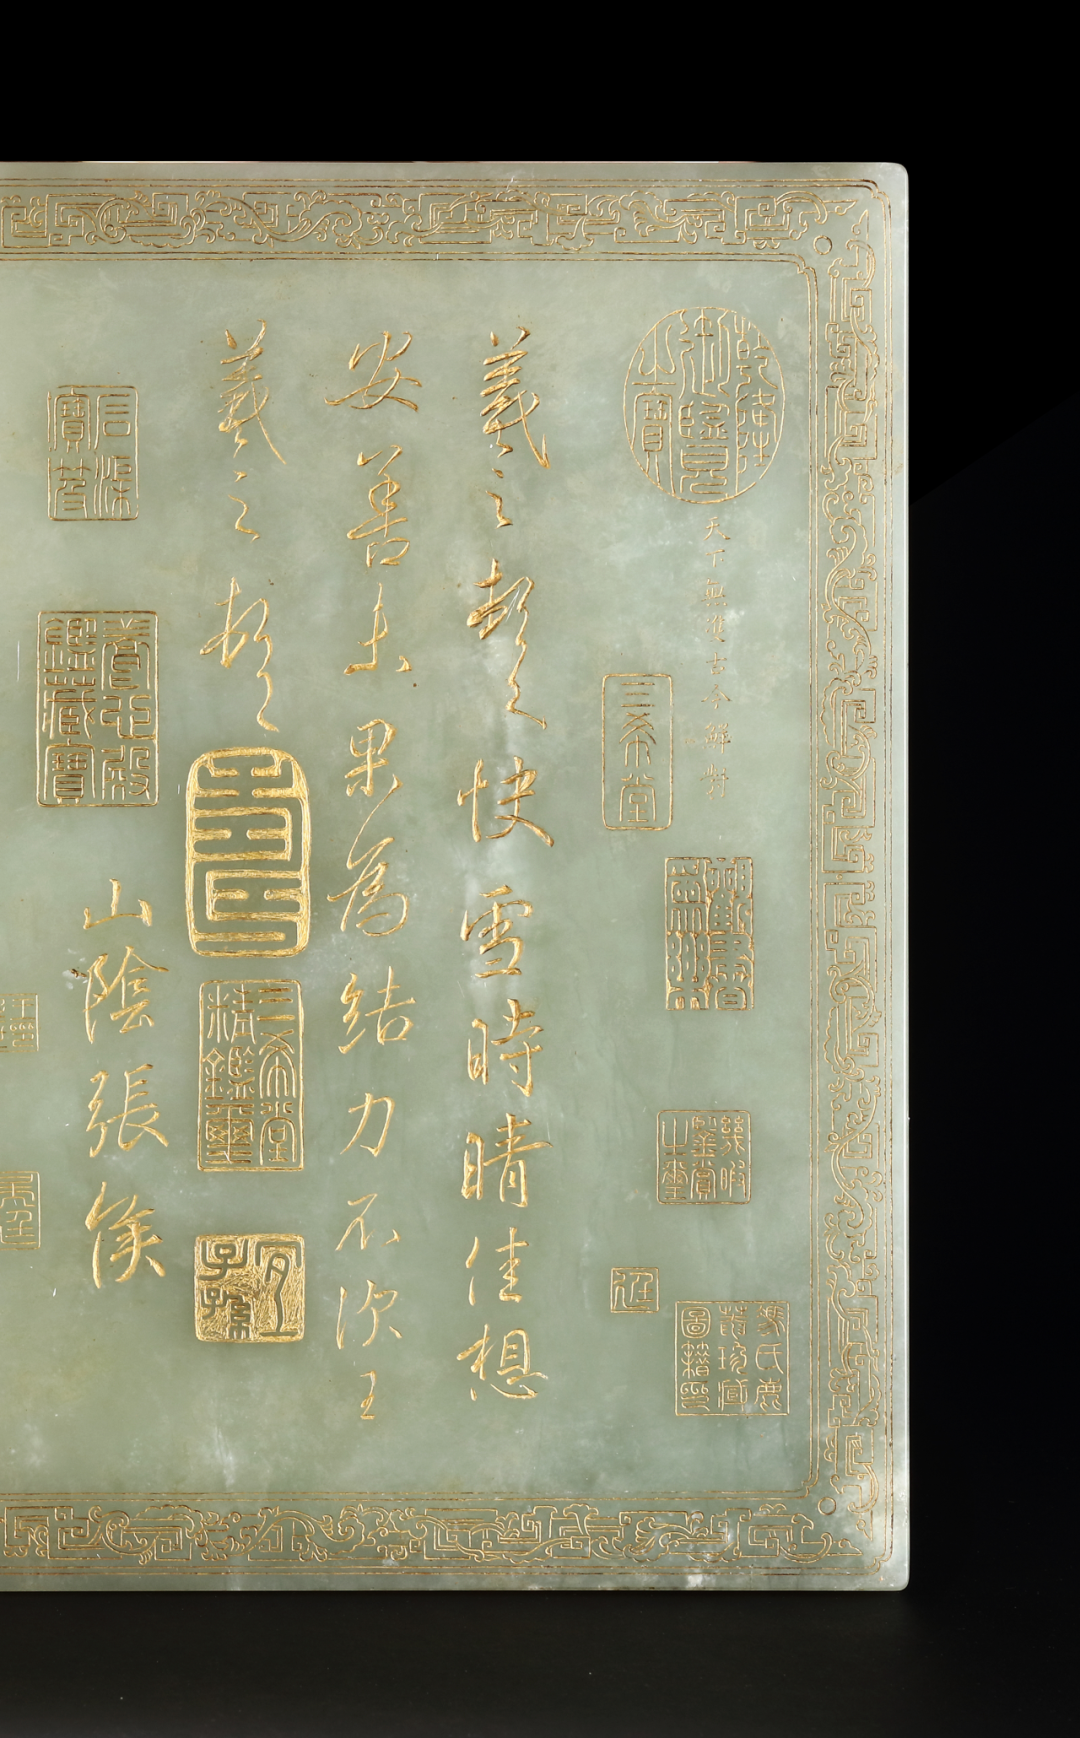 乾隆御覽之寶
天下無雙古今鮮對
三希堂
幾暇鑒賞之璽
馮氏鹿菴珍藏圖籍印
羲之頓首快雪時晴佳想
安善未果為結力不次王
羲之頓首
三希堂精鑑璽
宜子孫
山陰張侯
石渠寶笈
養心殿鑑藏寶